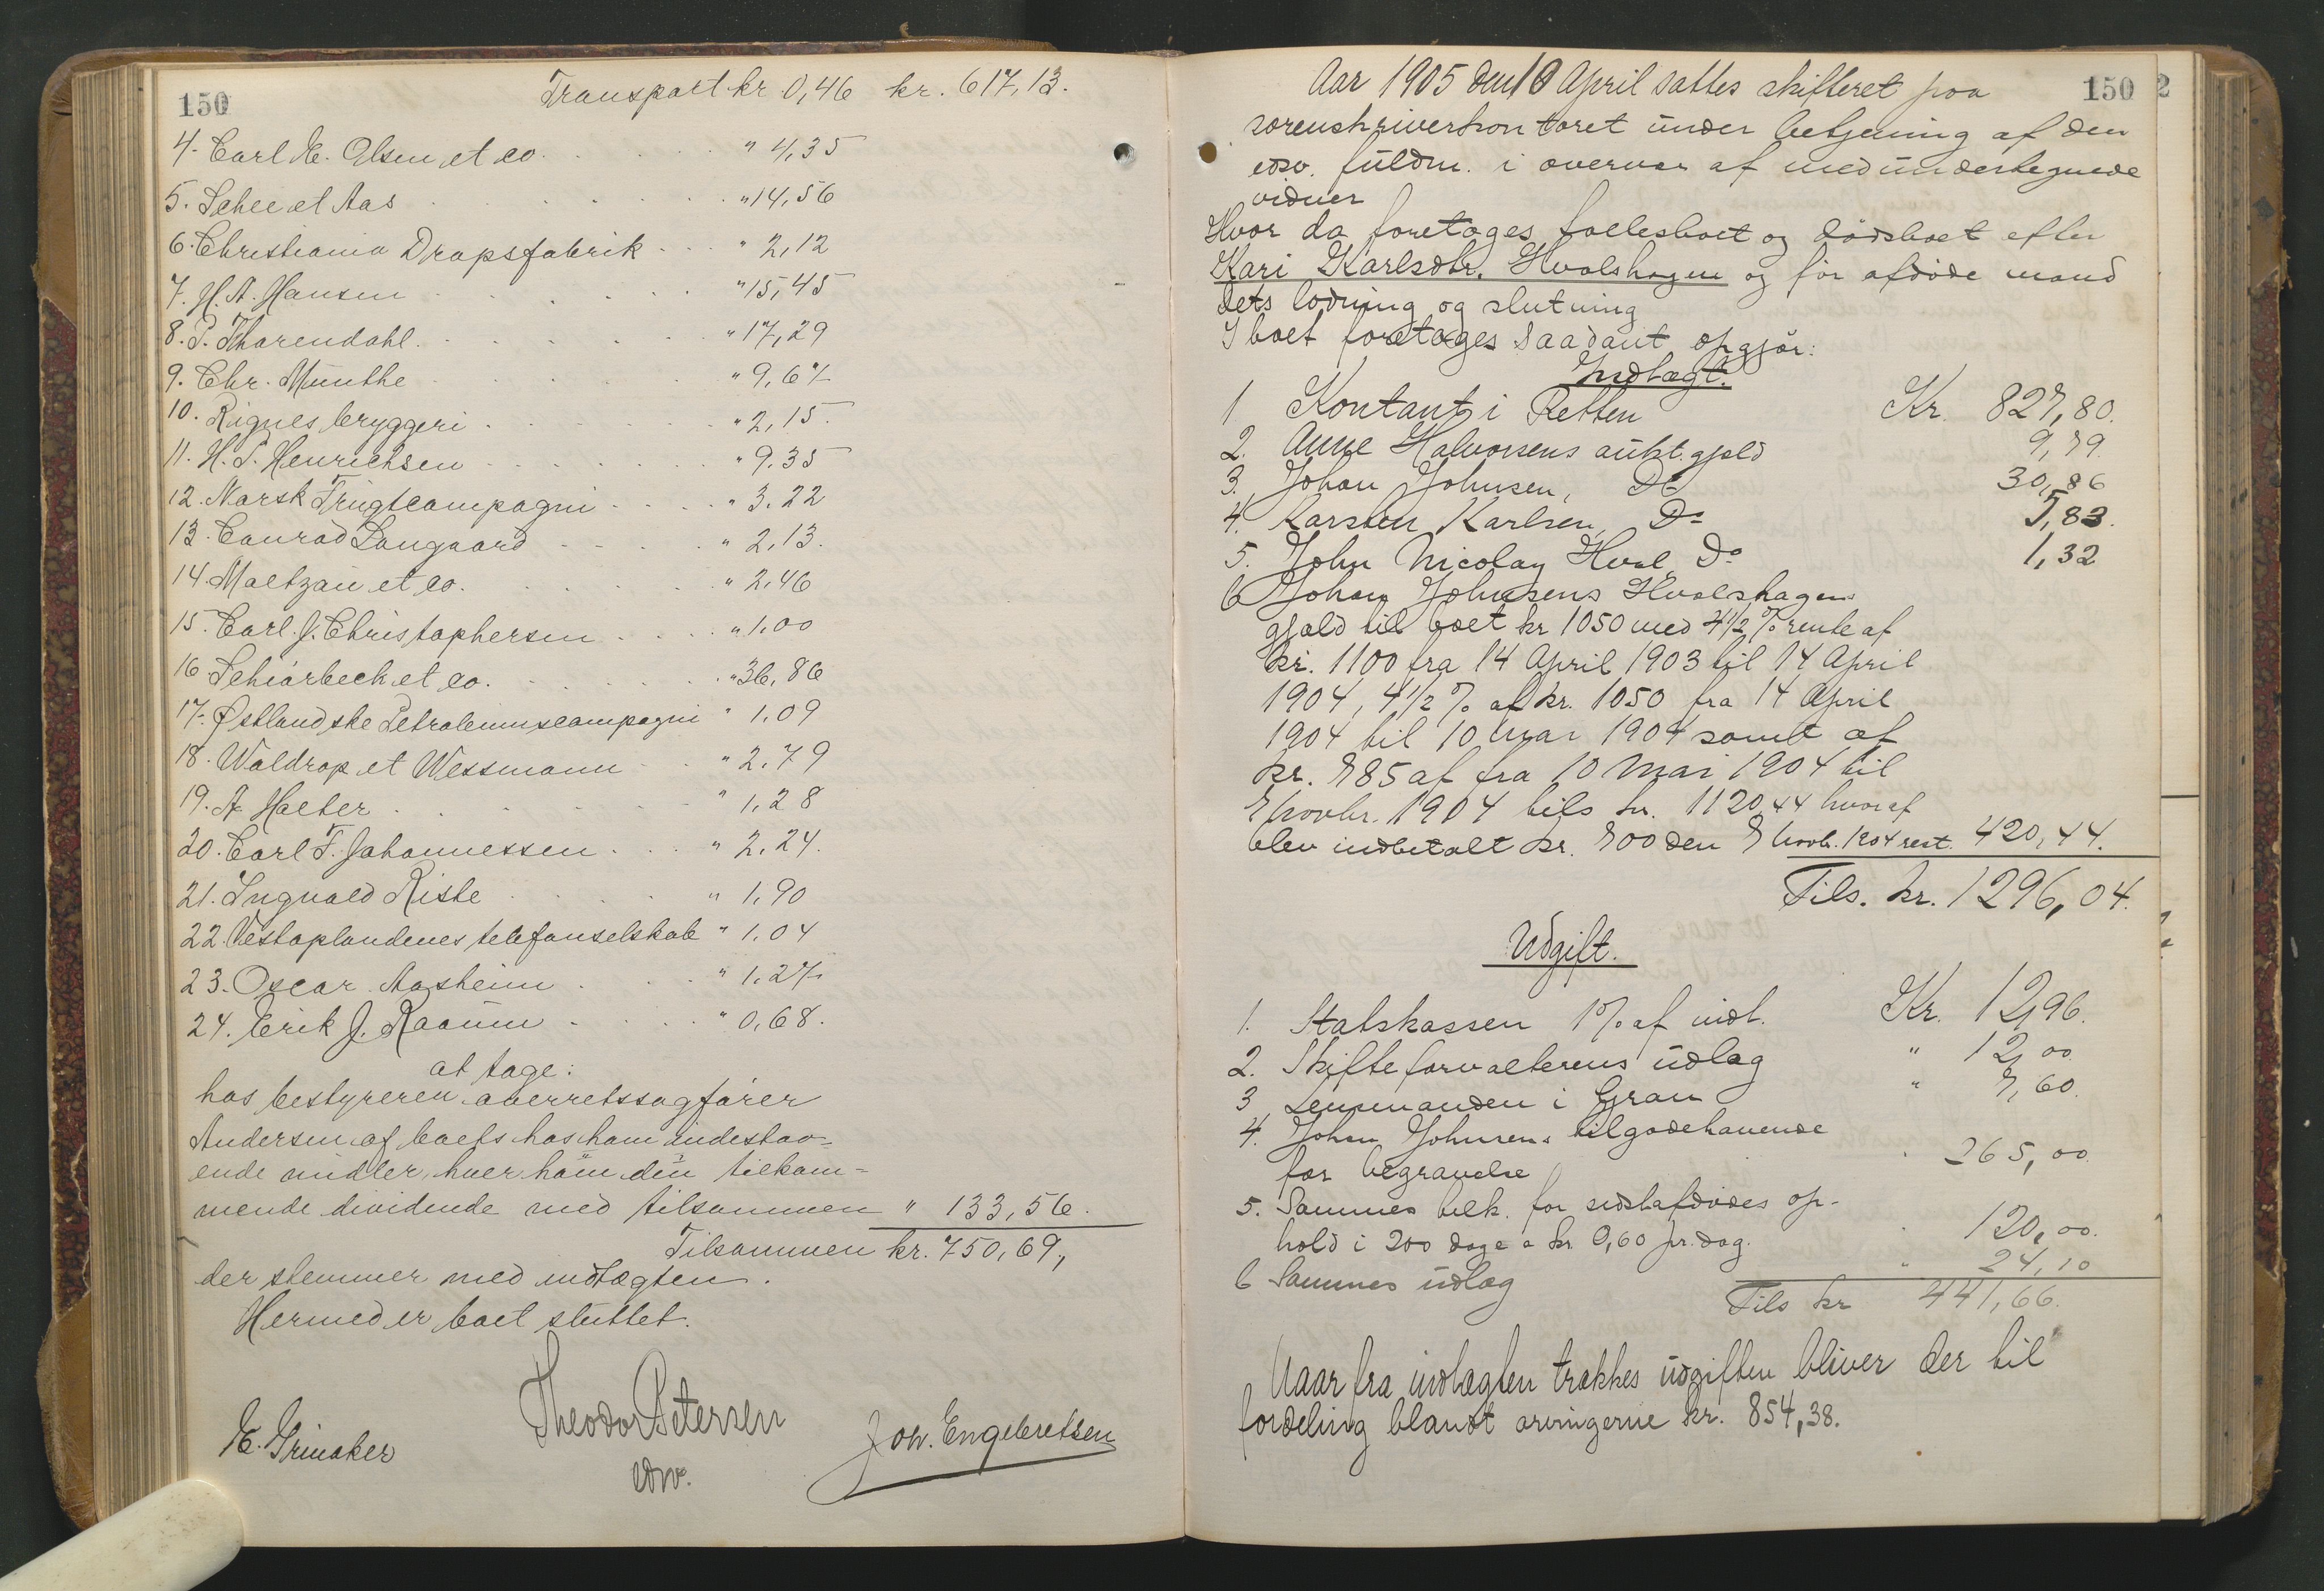 150
Transport kr. 0,46 kr. 617,13.
4. Carl E. Olsen et co. " 4,35
5. Schee et Aas " 14,56
6. Christiania Dropsfabrik " 2,12
7. H. A. Hansen " 15,45
8. P. Tharendahl " 17,29
9. Chr. Munthe " 9,67
10. Rignes bryggeri " 2,15.
11. H. S. Henrichsen " 9.35
12. Norsk Frugtcompagni " 3.22
13. Conrad Langaard " 2,13.
14. Maltzau et co. " 2,46
15. Carl J. Christophersen " 1,00
16. Schiørbeck et co. " 36,86
17. Østlandske Petroleumscompagni " 1,09
18. Waldrop et Wessmann " 2.79
19. A. Holter " 1,28
20. Carl F. Johannessen " 2.24.
21. Ingvald Riste " 1,90
22. Vestoplandenes telefonselskab " 1,04
23. Oscar Aasheim " 1,27
24. Erik J. Raaum " 0,68.
at tage:
hos bestyreren overretssagfører
Andersen af boets hos ham indestaa-
ende midler, hver ham din tilkom-
mende dividende med tilsammen " 133,56.
Tilsammen kr. 750,69,
der stemmer med indtægten.
Hermed er boet sluttet.
E. Grinaker
Theodor Petersen
edsv.
Joh. Engebretsen
150
Aar 1905 den 10 April sattes skifteret paa
sorenskriverkontoret under betjening af den
edsv. fuldm. i overvær af medundertegnede
vidner
Hvor da foretoges fællesboet og dødsboet efter
Kari Karlsdtr. Hvalshagen og før afdøde mand
dets lodning og slutning
I boet foretoges saadant opgjør:
Indtægt.
1 Kontant i Retten Kr. 827,80.
2. Anne Halvorsens aukt. gjæld 9,79.
3. Johan Johnsen, Do 30,86
4. Karsten Karlsen, Do 5,83.
5. John Nicolay Hval, Do 1,32
6 Johan Johnsens Hvalshagen
gjæld til boet kr 1050 med 4 1/2 % rente af
kr. 1100 fra 14 April 1903 til 14 April
1904, 4 1/2 % af kr. 1050 fra 14 April
1904 til 10 mai 1904 samt af
kr. 785 af fra 10 Mai 1904 til
7 novbr. 1904 tils kr. 1120,44 hvoraf
blev indbetalt kr. 700 den 7 novb. 1904 rest. 420,44.
Tils. kr. 1296,04.
Udgift.
1. Statskassen 1% af indt. Kr. 12,96.
2. Skifteforvalterens udlæg " 12,00.
3 Lensmanden i Gran " 7,60.
4. Johan Johnsens tilgodehavende
for begravelse 265,00
5. Sammes tilk. for sidstafdødes op-
hold i 200 dage a kr. 0,60 pr. dag. 120,00.
6 Sammes udlæg " 24,10
Tils kr 441,66.
Naar fra indtægten trækkes udgiften bliver der til
fordeling blandt arvingerne kr. 854,38.